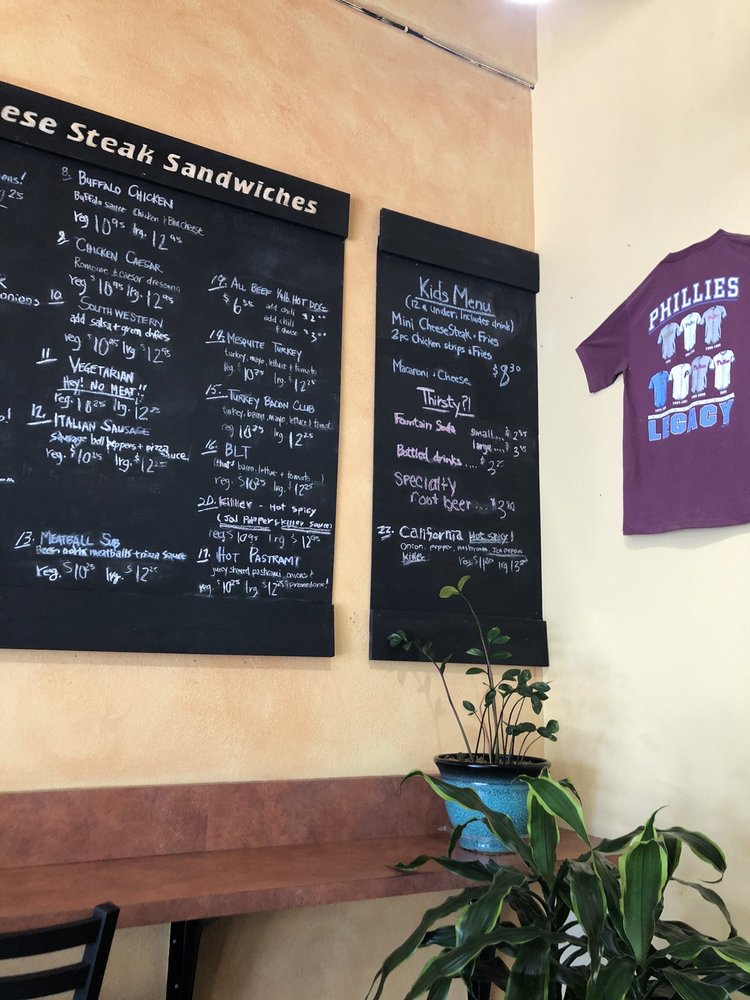 ese Steak Sandwiches
ons!
25
onions
8. BUFFALO CHICKEN
Buffalo sauce Chicken & Blu cheese
reg 10.95 lrg. 12.95
9. CHICKEN CAESAR
Romaine & caesar dressing
reg 10.95 lrg. 12.95
10. SOUTHWESTERN
add salsa & green chilies
reg 10.95 lrg. 12.95
11. VEGETARIAN
Hey! NO MEAT!!
reg 10.25 lrg. 12.25
12. ITALIAN SAUSAGE
Sausage bell peppers & pizza sauce
reg. $10.25 lrg. $12.25
13. MEATBALL SUB
meatballs & pizza sauce
reg. $10.25 lrg. $12.25
19. ALL BEEF 1/4 lb. HOT DOG
$6.35 add chili $2.00
add chili & cheese $3.00
14. MESQUITE TURKEY
turkey, mayo, lettuce & tomato
reg. 10.25 lrg. 12.25
15. TURKEY BACON CLUB
turkey, bacon, mayo, lettuce & tomato
reg 10.25 lrg. $12.25
16. BLT
(that's bacon, lettuce & tomato...)
reg. $10.25 lrg. $12.25
20. Killer - Hot spicy
(Jal Pepper & Killer Sauce)
reg $10.95 lrg $12.95
17. HOT PASTRAMI
juicy shaved pastrami, onions &
reg. $10.25 lrg. $12.25 (provolone!)
Kids Menu
(12 & under, includes drink)
Mini CheeseSteak & Fries
2pc Chicken strips & Fries
$8.30
Macaroni & Cheese
Thirsty?!
Fountain Soda small...$2.95
large....$3.45
Bottled drinks....$3.25
Specialty
root beer....$3.80
22. California Hot Spicy!
Onion, pepper, mushroom, Jal pepper
Killer reg $11.20 lrg
PHILLIES
LEGACY